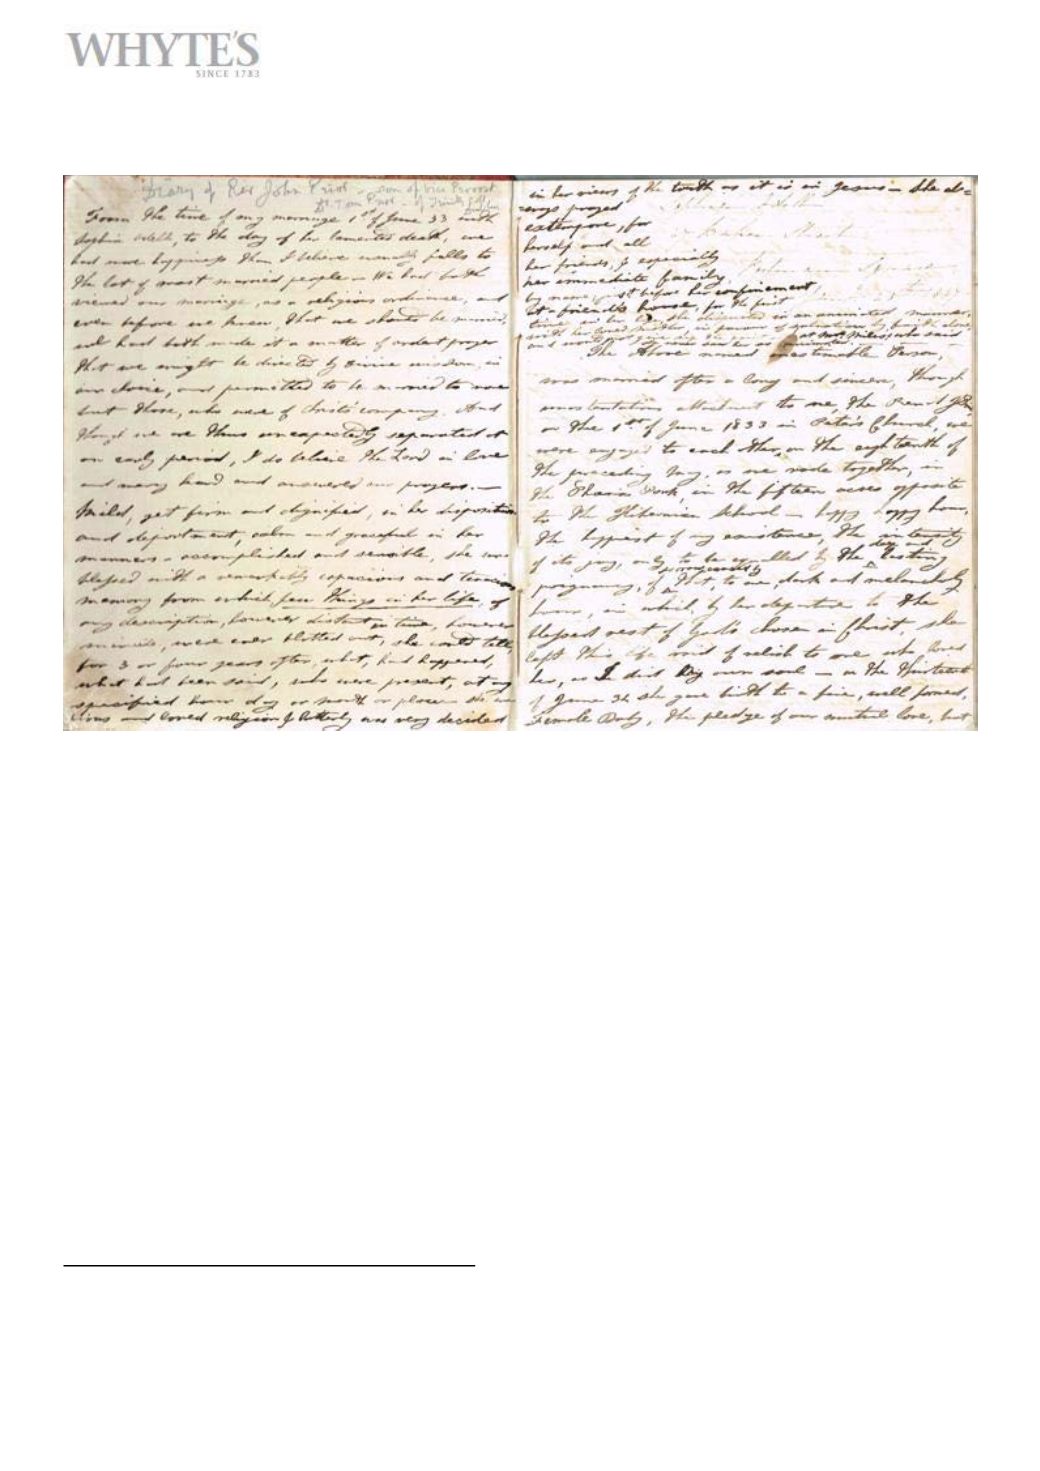 WHYTE'S
SINCE 1783
Diary of Rev John Prior - son of Vice Provost
Dr. Tom Prior - of Trinity Coll
From the time of my marriage 1st of June 33 with
Sophia to the day of her lamented death, we
had more happiness than I believe usually falls to
the lot of most married people - We had both
viewed our marriage, as a religious ordinance, and
even before we knew, that we should be married,
we had both made it a matter of ardent prayer
that we might be directed by divine wisdom, in
our choice, and permitted to be married to none
but those, who were of Christ's company. And
though we are thus unexpectedly separated at
an early period, I do believe the Lord in love
and mercy heard and answered our prayers. -
Mild, yet firm and dignified, in her disposition
and deportment, calm and graceful in her
manners - accomplished and sensible, she was
blessed with a remarkably capacious and tenacious
memory from which few things in her life, of
any description, however distant in time, however
minute, were ever blotted out, she could tell,
for 3 or four years after, what, had happened,
what had been said, who were present, at any
specified hour day or month or place - she was
and loved religion & latterly was very decided
in her views of the truth as it is in Jesus - she al=
=ways prayed
extempore, for
herself and all
her friends, & especially
her immediate family,
by name, just before her confinement,
at a friend's house, for the first
time in her life, she disputed in an animated manner,
with her loved mother, in favour of salvation by faith alone,
and would not give up the
at Mrs Miles's, who said
she never saw her so animated
The Above named inestimable Person,
was married after a long and sincere, though
unostentatious attachment to me, the Revd John
on the 1st of June 1833 in Peter's Church, we
were engaged to each other, on the eighteenth of
the preceding May, as we rode together, in
the Phoenix Park, in the fifteen acres opposite
to the Hibernian School - happy happy hour,
the happiest of my existence, the intensity
of its joy, only to be equalled by the day and lasting
poignancy, of permanently that, to me, dark and melancholy
hour, in which, by her departure to the
blessed rest of God's chosen in Christ, she
left this life void of relish to one who loved
her, as I did my own soul - on the thirteenth
of June 34 she gave birth to a fine, well formed,
Female Baby, the pledge of our mutual love, but